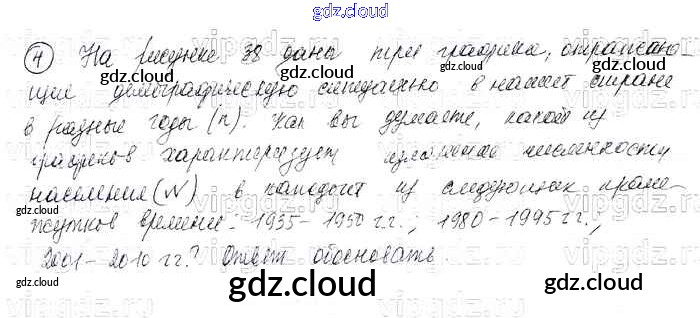 gdz.cloud
④ На рисунке 38 даны три графика, отражаю-
щие демографическую ситуацию в нашей стране
в разные годы (n). Как вы думаете, какой из
графиков характеризует изменение численности
населения (N) в каждый из следующих проме-
жутков времени: 1935-1950 г.г.; 1980-1995 г.г.;
2001-2010 г.г.? Ответ обосновать.
gdz.cloud